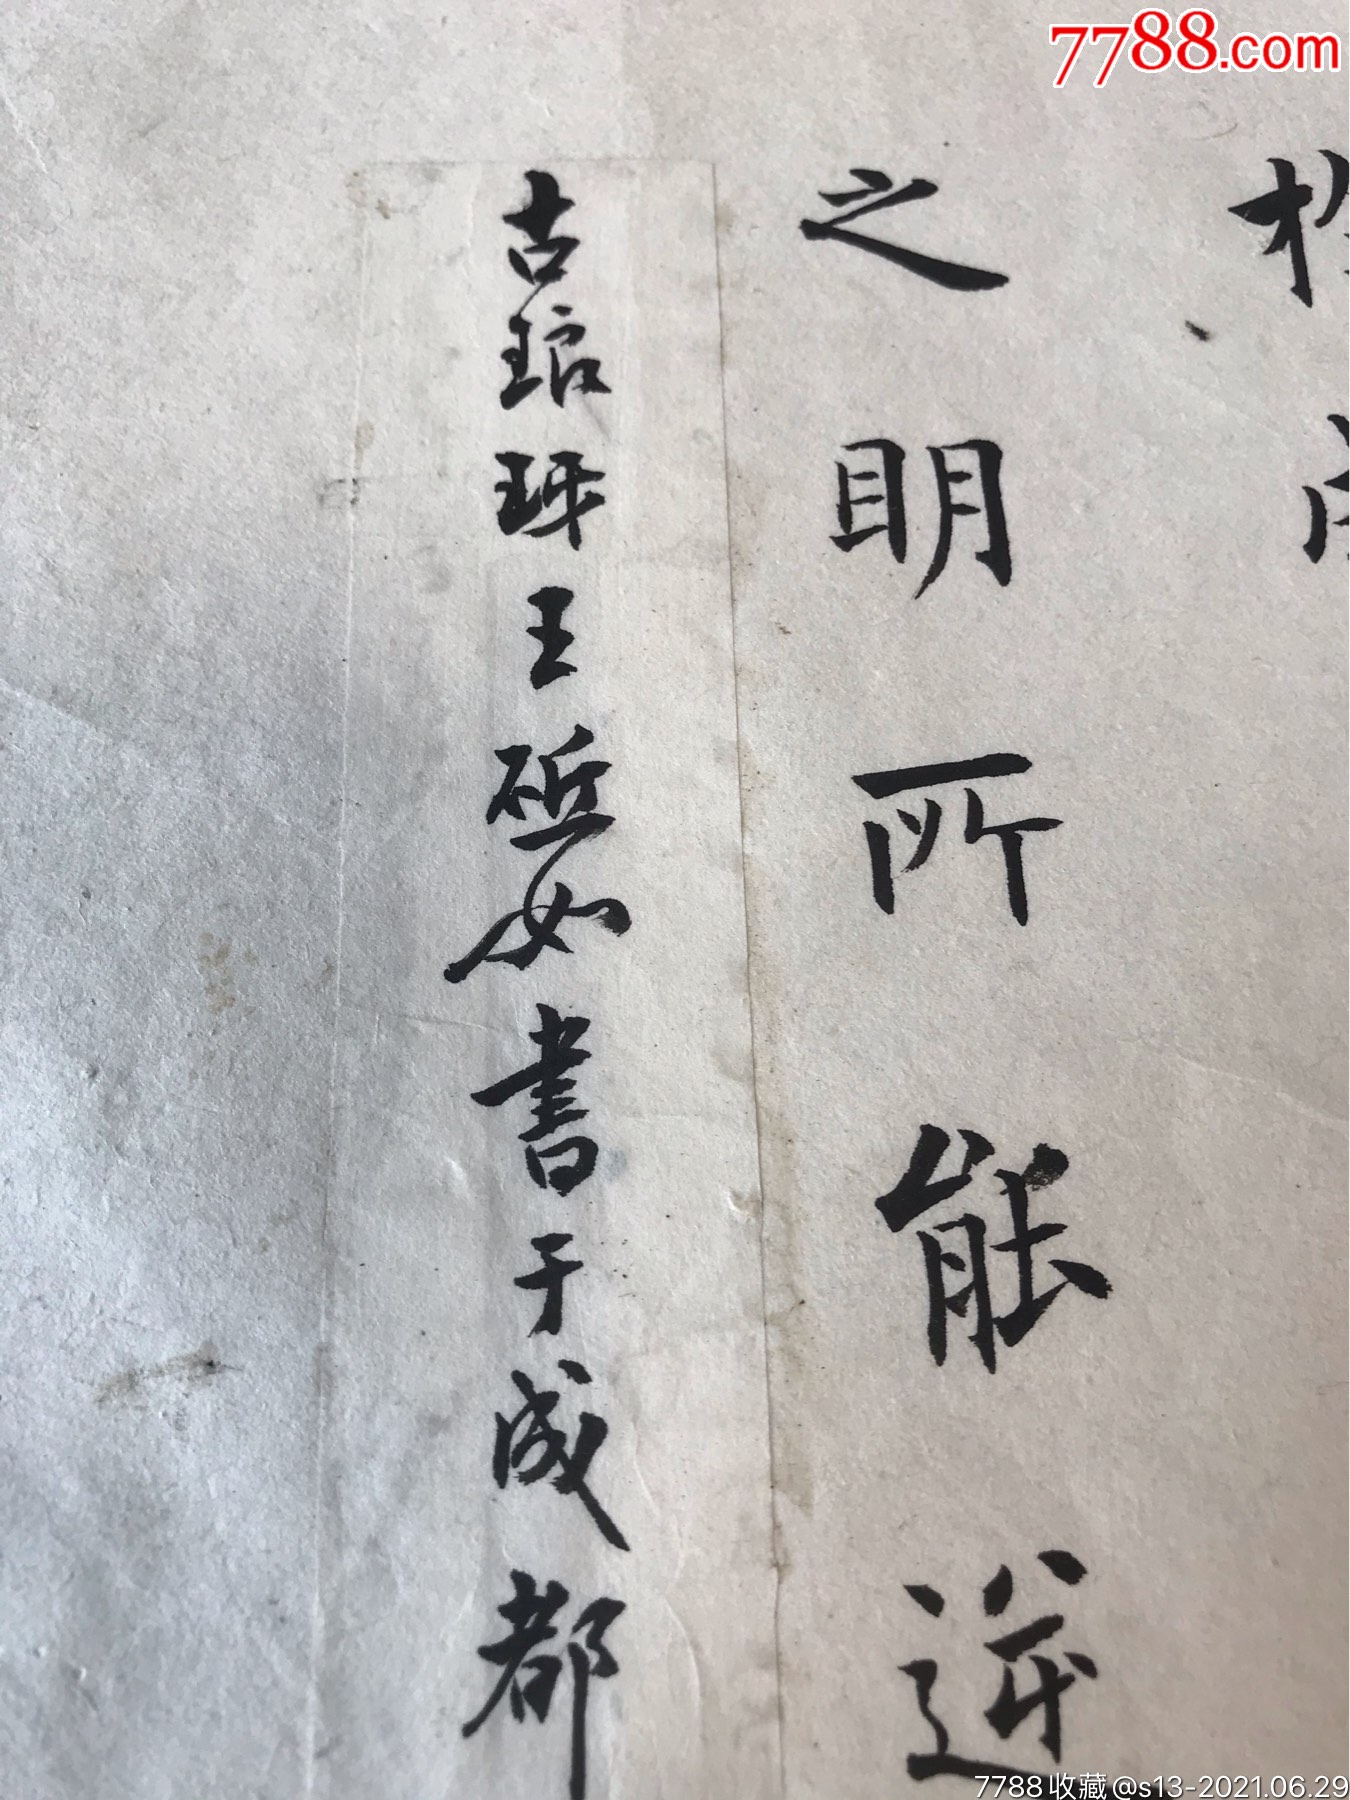 7788.com
之明所能逆
古琅玡王砥如書于成都
7788收藏@s13-2021.06.29